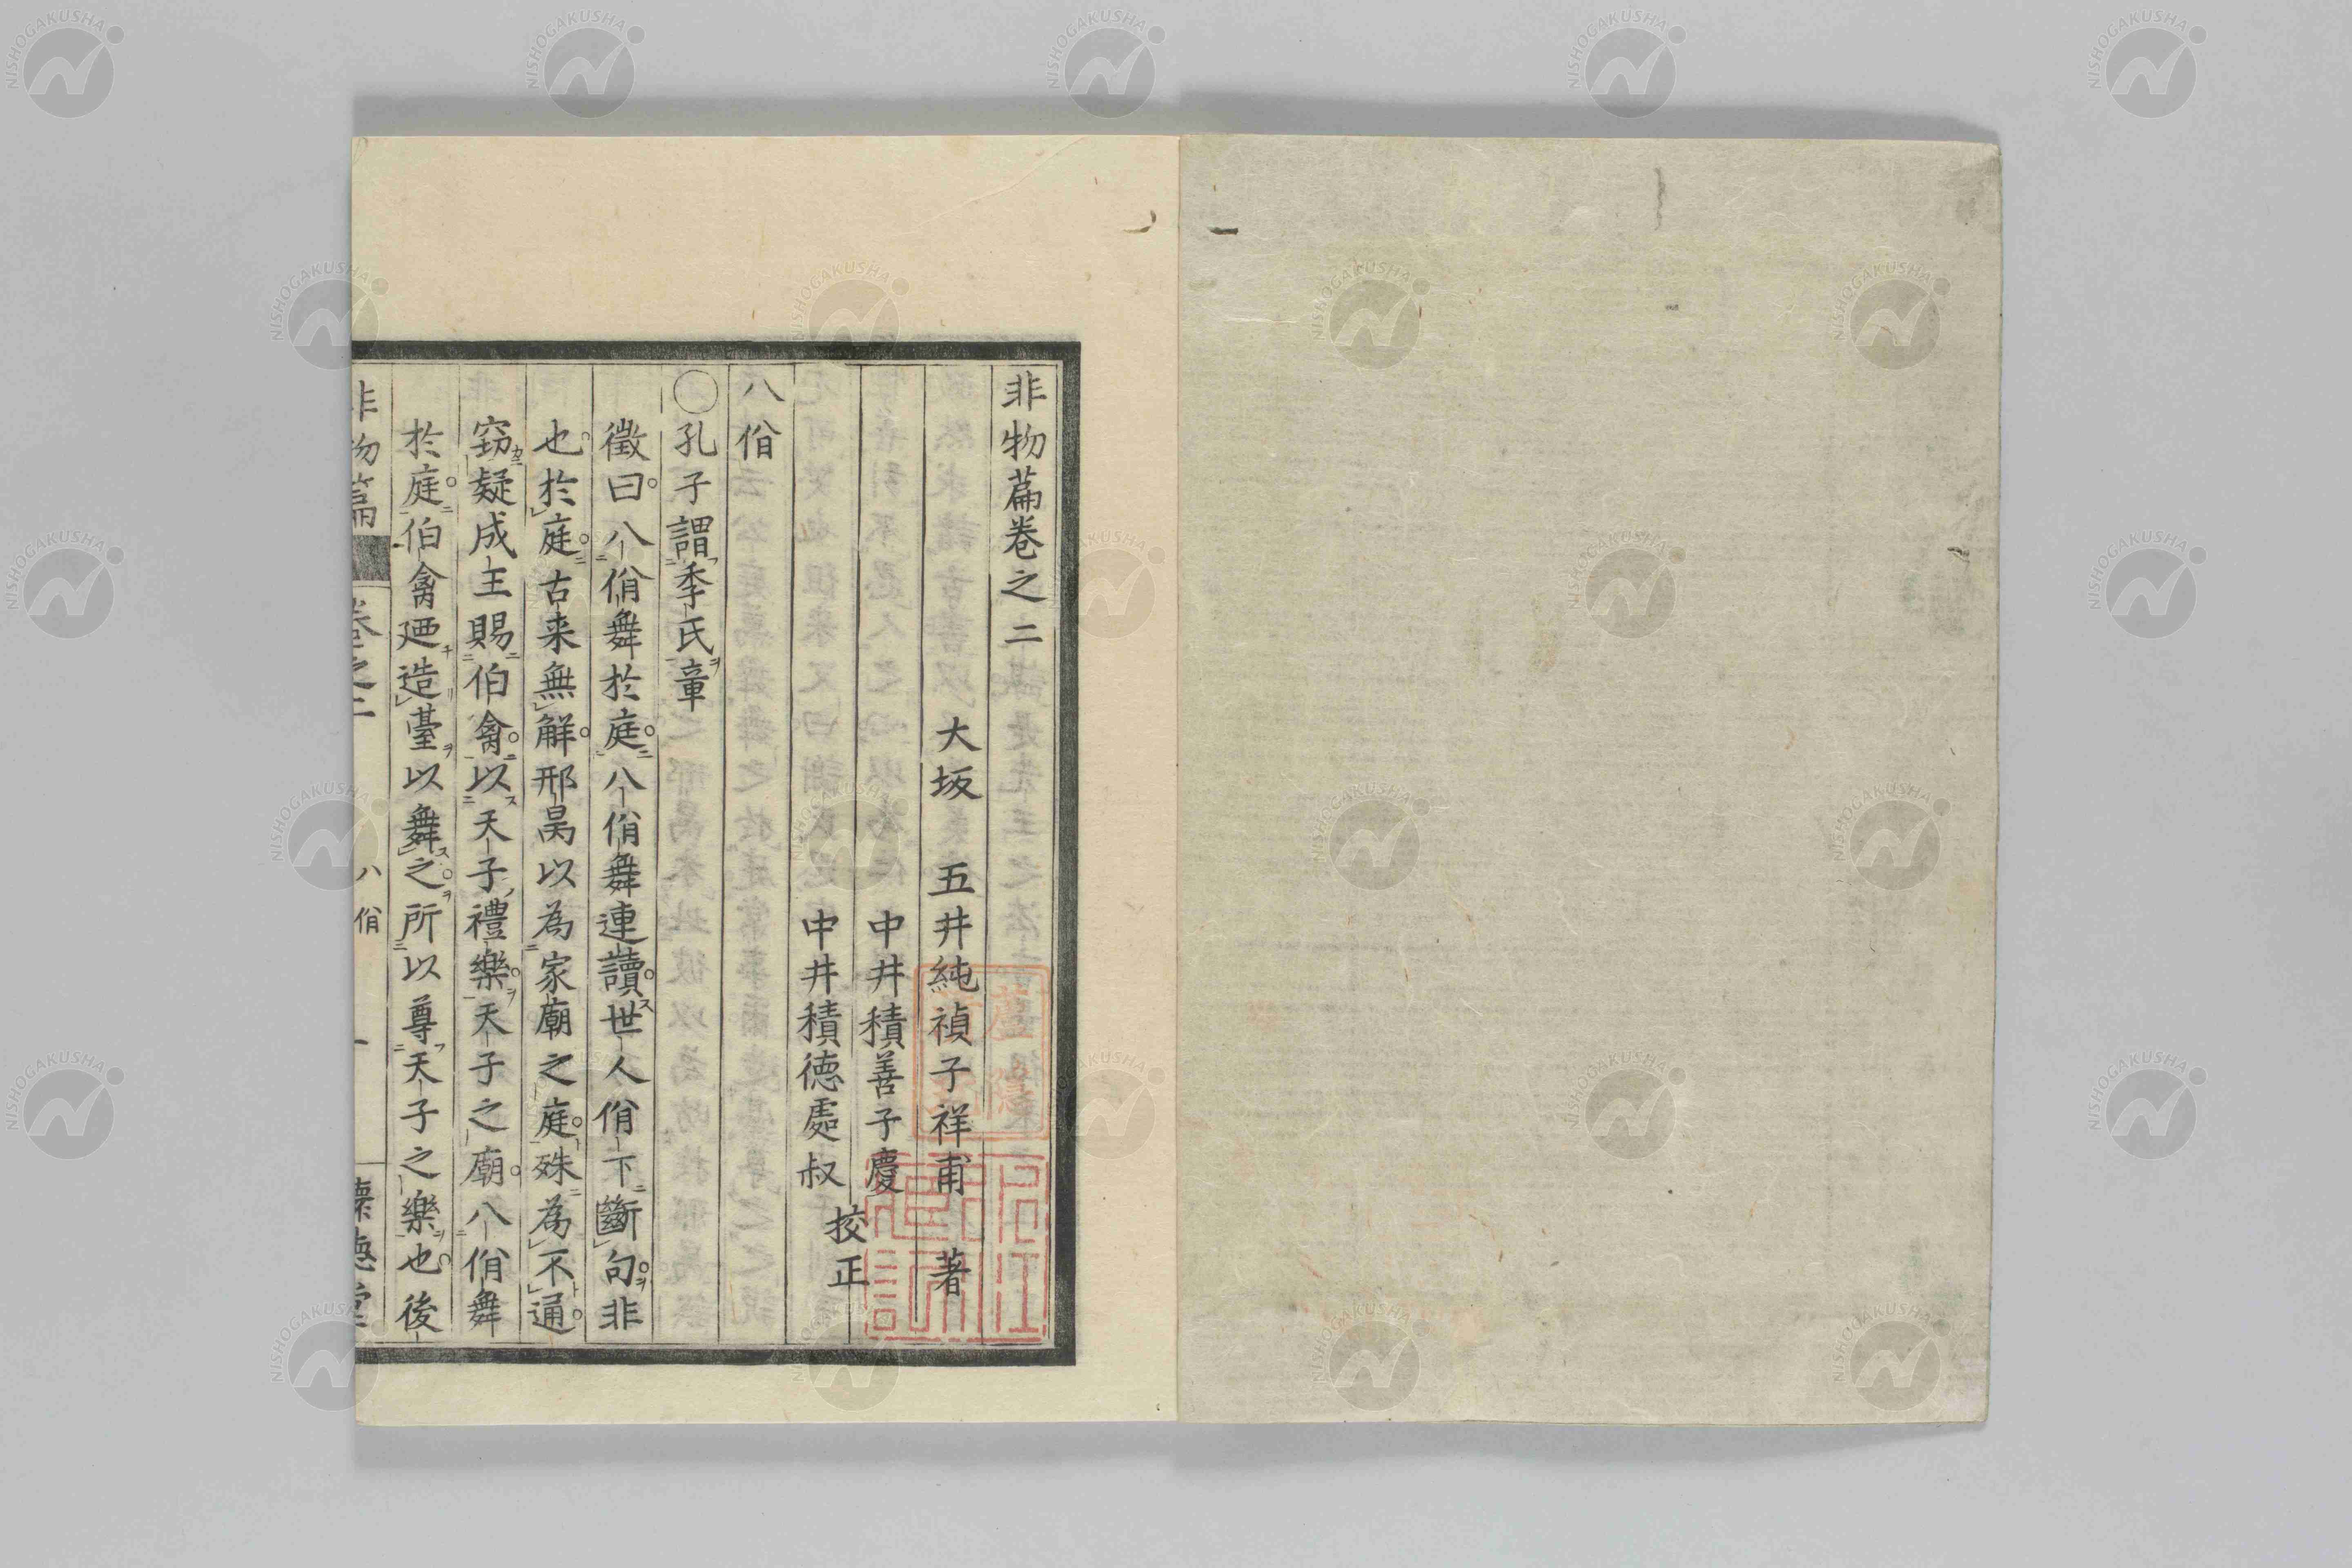 非物篇卷之二
大坂 五井純禎子祥甫 著
中井積善子慶
中井積德處叔
校正
八佾
〇孔子謂季氏章
徵曰八佾舞於庭八佾舞連讀世人佾下斷句非
也於庭古来無解邢昺以為家廟之庭殊為不通
竊疑成王賜伯禽以天子禮樂天子之廟八佾舞
於庭伯禽廼造臺以舞之所以尊天子之樂也後
非物篇 卷之二 八佾 一 懷德堂
NISHOGAKUSHA